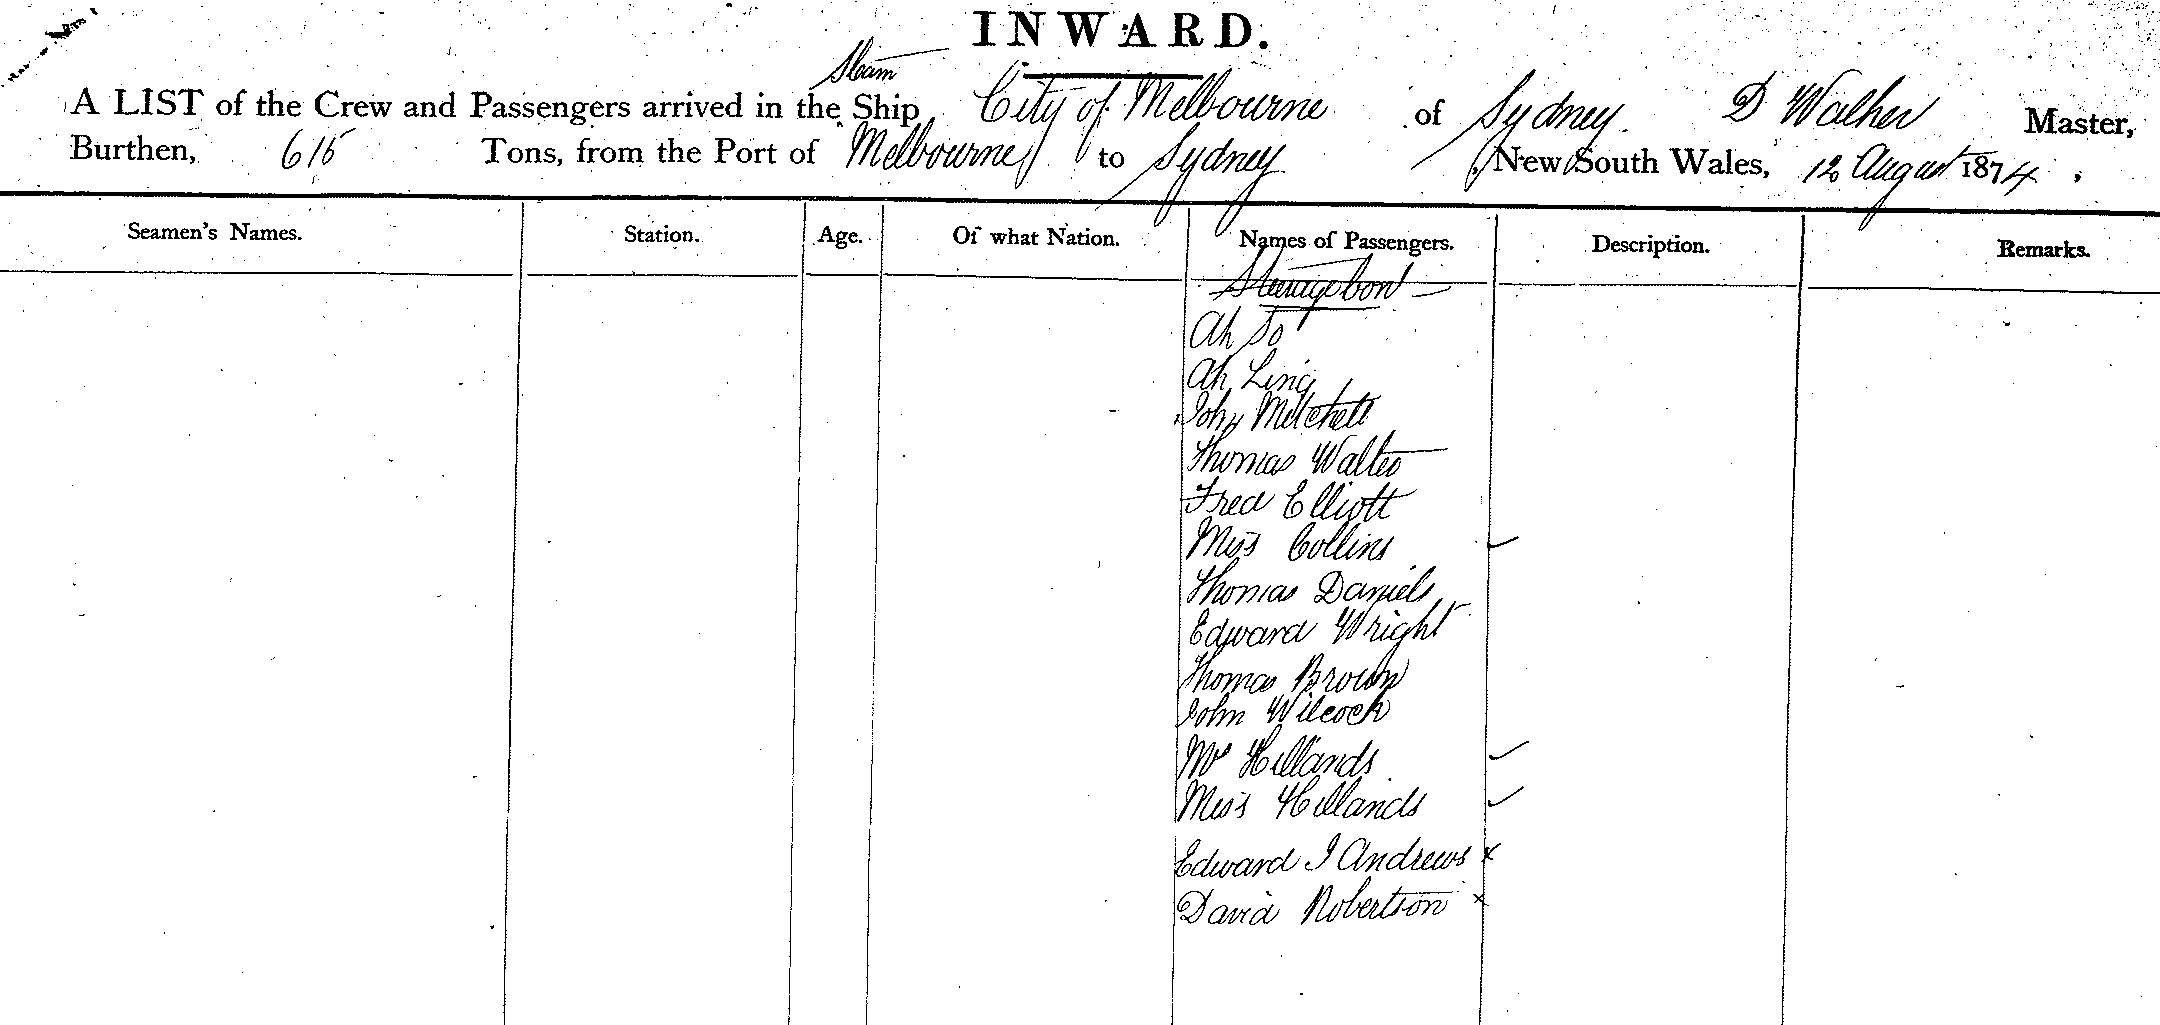 INWARD.
Steam
A LIST of the Crew and Passengers arrived in the Ship City of Melbourne of Sydney. D Walker Master,
Burthen, 615 Tons, from the Port of Melbourne to Sydney New South Wales, 12 August 1874.
Seamen's Names. Station. Age. Of what Nation. Names of Passengers. Description. Remarks.
Ah So
Ah Ling
John Mitchell
Thomas Walter
Fred Elliott
Miss Collins
Thomas Daniels
Edward Wright
Thomas Brown
John Wilcock
Mr Hillands
Miss Hillands
Edward J Andrews x
David Robertson x